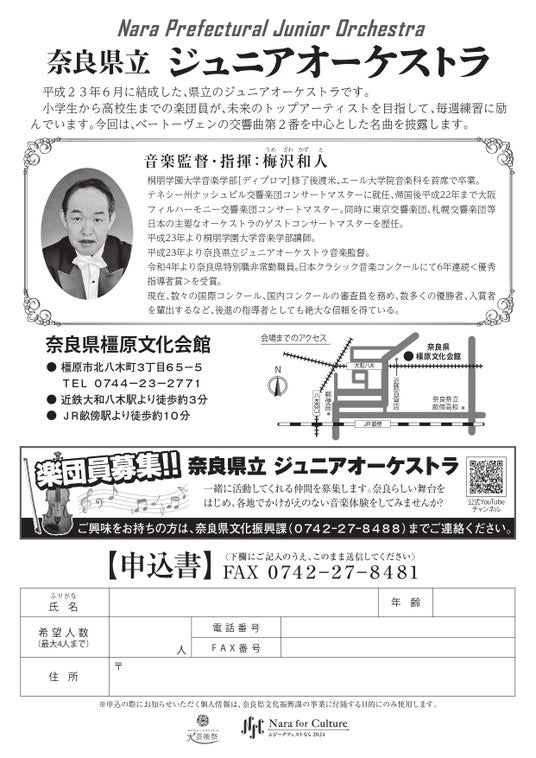 Nara Prefectural Junior Orchestra
奈良県立 ジュニアオーケストラ
平成23年6月に結成した、県立のジュニアオーケストラです。
小学生から高校生までの楽団員が、未来のトップアーティストを目指して、毎週練習に励
んでいます。今回は、ベートーヴェンの交響曲第2番を中心とした名曲を披露します。
音楽監督・指揮：梅沢和人
うめ ざわ かず と
桐朋学園大学音楽学部[ディプロマ]修了後渡米、エール大学院音楽科を首席で卒業。
テネシー州ナッシュビル交響楽団コンサートマスターに就任、帰国後平成22年まで大阪
フィルハーモニー交響楽団コンサートマスター。同時に東京交響楽団、札幌交響楽団等
日本の主要なオーケストラのゲストコンサートマスターを歴任。
平成23年より桐朋学園大学音楽学部講師。
平成23年より奈良県立ジュニアオーケストラ音楽監督。
令和4年より奈良県特別職非常勤職員。日本クラシック音楽コンクールにて6年連続<優秀
指導者賞>を受賞。
現在、数々の国際コンクール、国内コンクールの審査員を務め、数多くの優勝者、入賞者
を輩出するなど、後進の指導者としても絶大な信頼を得ている。
奈良県橿原文化会館
● 橿原市北八木町3丁目65－5
TEL 0744－23－2771
● 近鉄大和八木駅より徒歩約3分
● JR畝傍駅より徒歩約10分
会場までのアクセス
N
奈良県
橿原文化会館
大和八木
八木西口
郵便局
近鉄百貨店
奈良県立
畝傍高校
JR畝傍
楽団員募集!! 奈良県立 ジュニアオーケストラ
一緒に活動してくれる仲間を募集します。奈良らしい舞台を
はじめ、各地でかけがえのない音楽体験をしてみませんか?
公式YouTube
チャンネル
ご興味をお持ちの方は、奈良県文化振興課（0742-27-8488）までご連絡ください。
【申込書】
〈下欄にご記入のうえ、このまま送信してください〉
FAX 0742－27－8481
ふりがな
氏 名
年 齢
希望人数
(最大4人まで)
人
電話番号
FAX番号
住 所
〒
※申込の際にお知らせいただく個人情報は、奈良県文化振興課の事業に付随する目的にのみ使用します。
大芸術祭
Nara for Culture
ムジークフェストなら2024